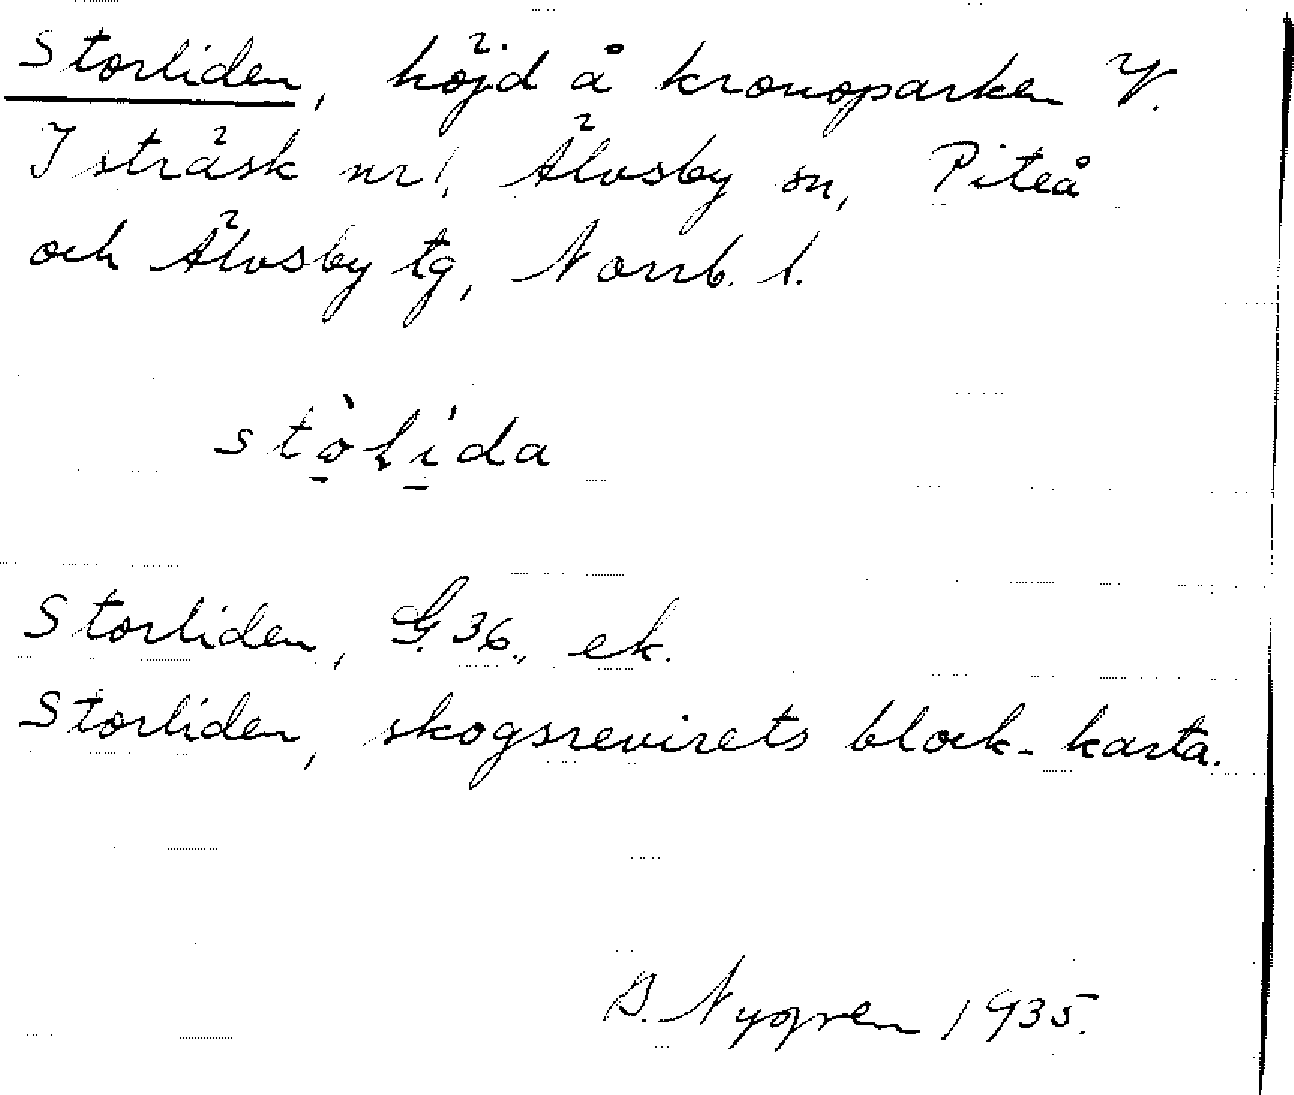 Storliden, höjd å kronoparken V.
Isträsk nr 1, Älvsby sn, Piteå
och Älvsby tg, Norrb. l.
stò̱li̱da
Storliden, G. 36., ek.
Storliden, skogsrevirets block-karta.
Nygren 1935.